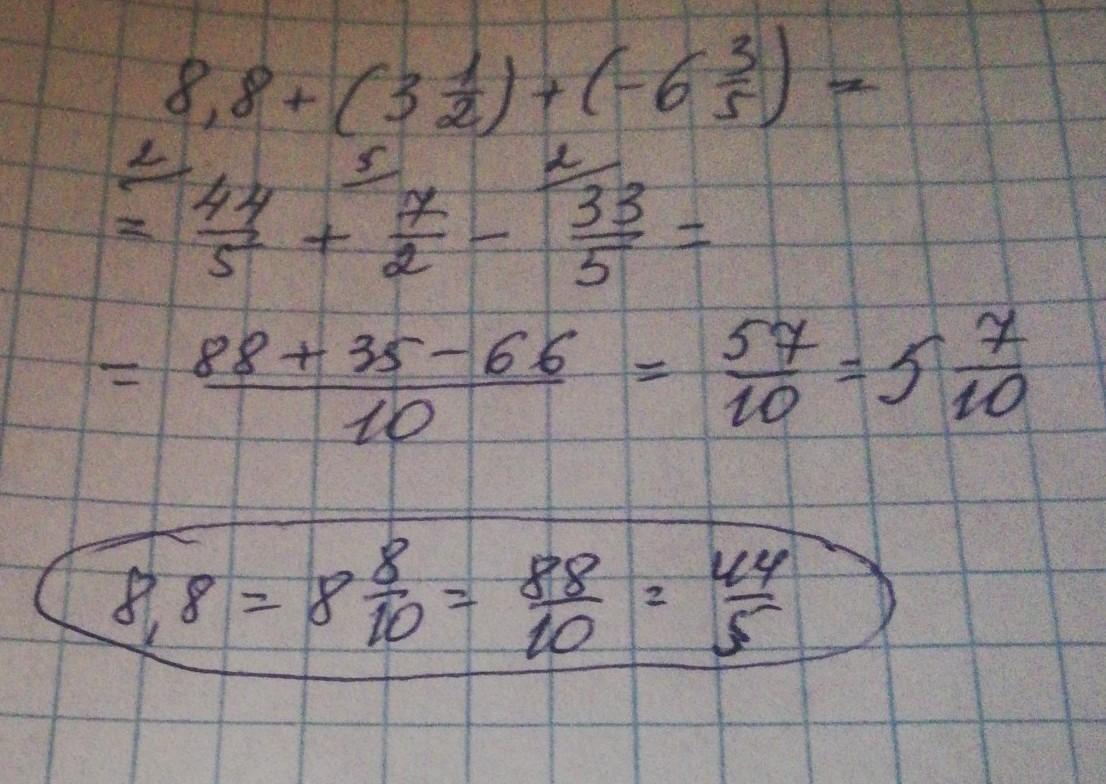 8,8 + (3 1/2) + (-6 3/5) =
2 5 2
= 44/5 + 7/2 - 33/5 =
= (88 + 35 - 66)/10 = 57/10 = 5 7/10
8,8 = 8 8/10 = 88/10 = 44/5